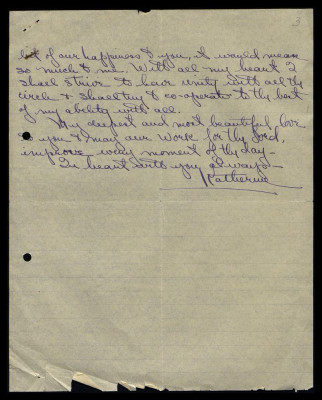 3
bit of our happiness to you, it would mean
so much to me. With all my heart I
shall strive to have unity with all thy
circle & shall try to co-operate to the best
of my ability with all.
My deepest and most beautiful love
to you & may our Work for thy Lord,
improve every moment of thy day.
In heart with you always
Katherine